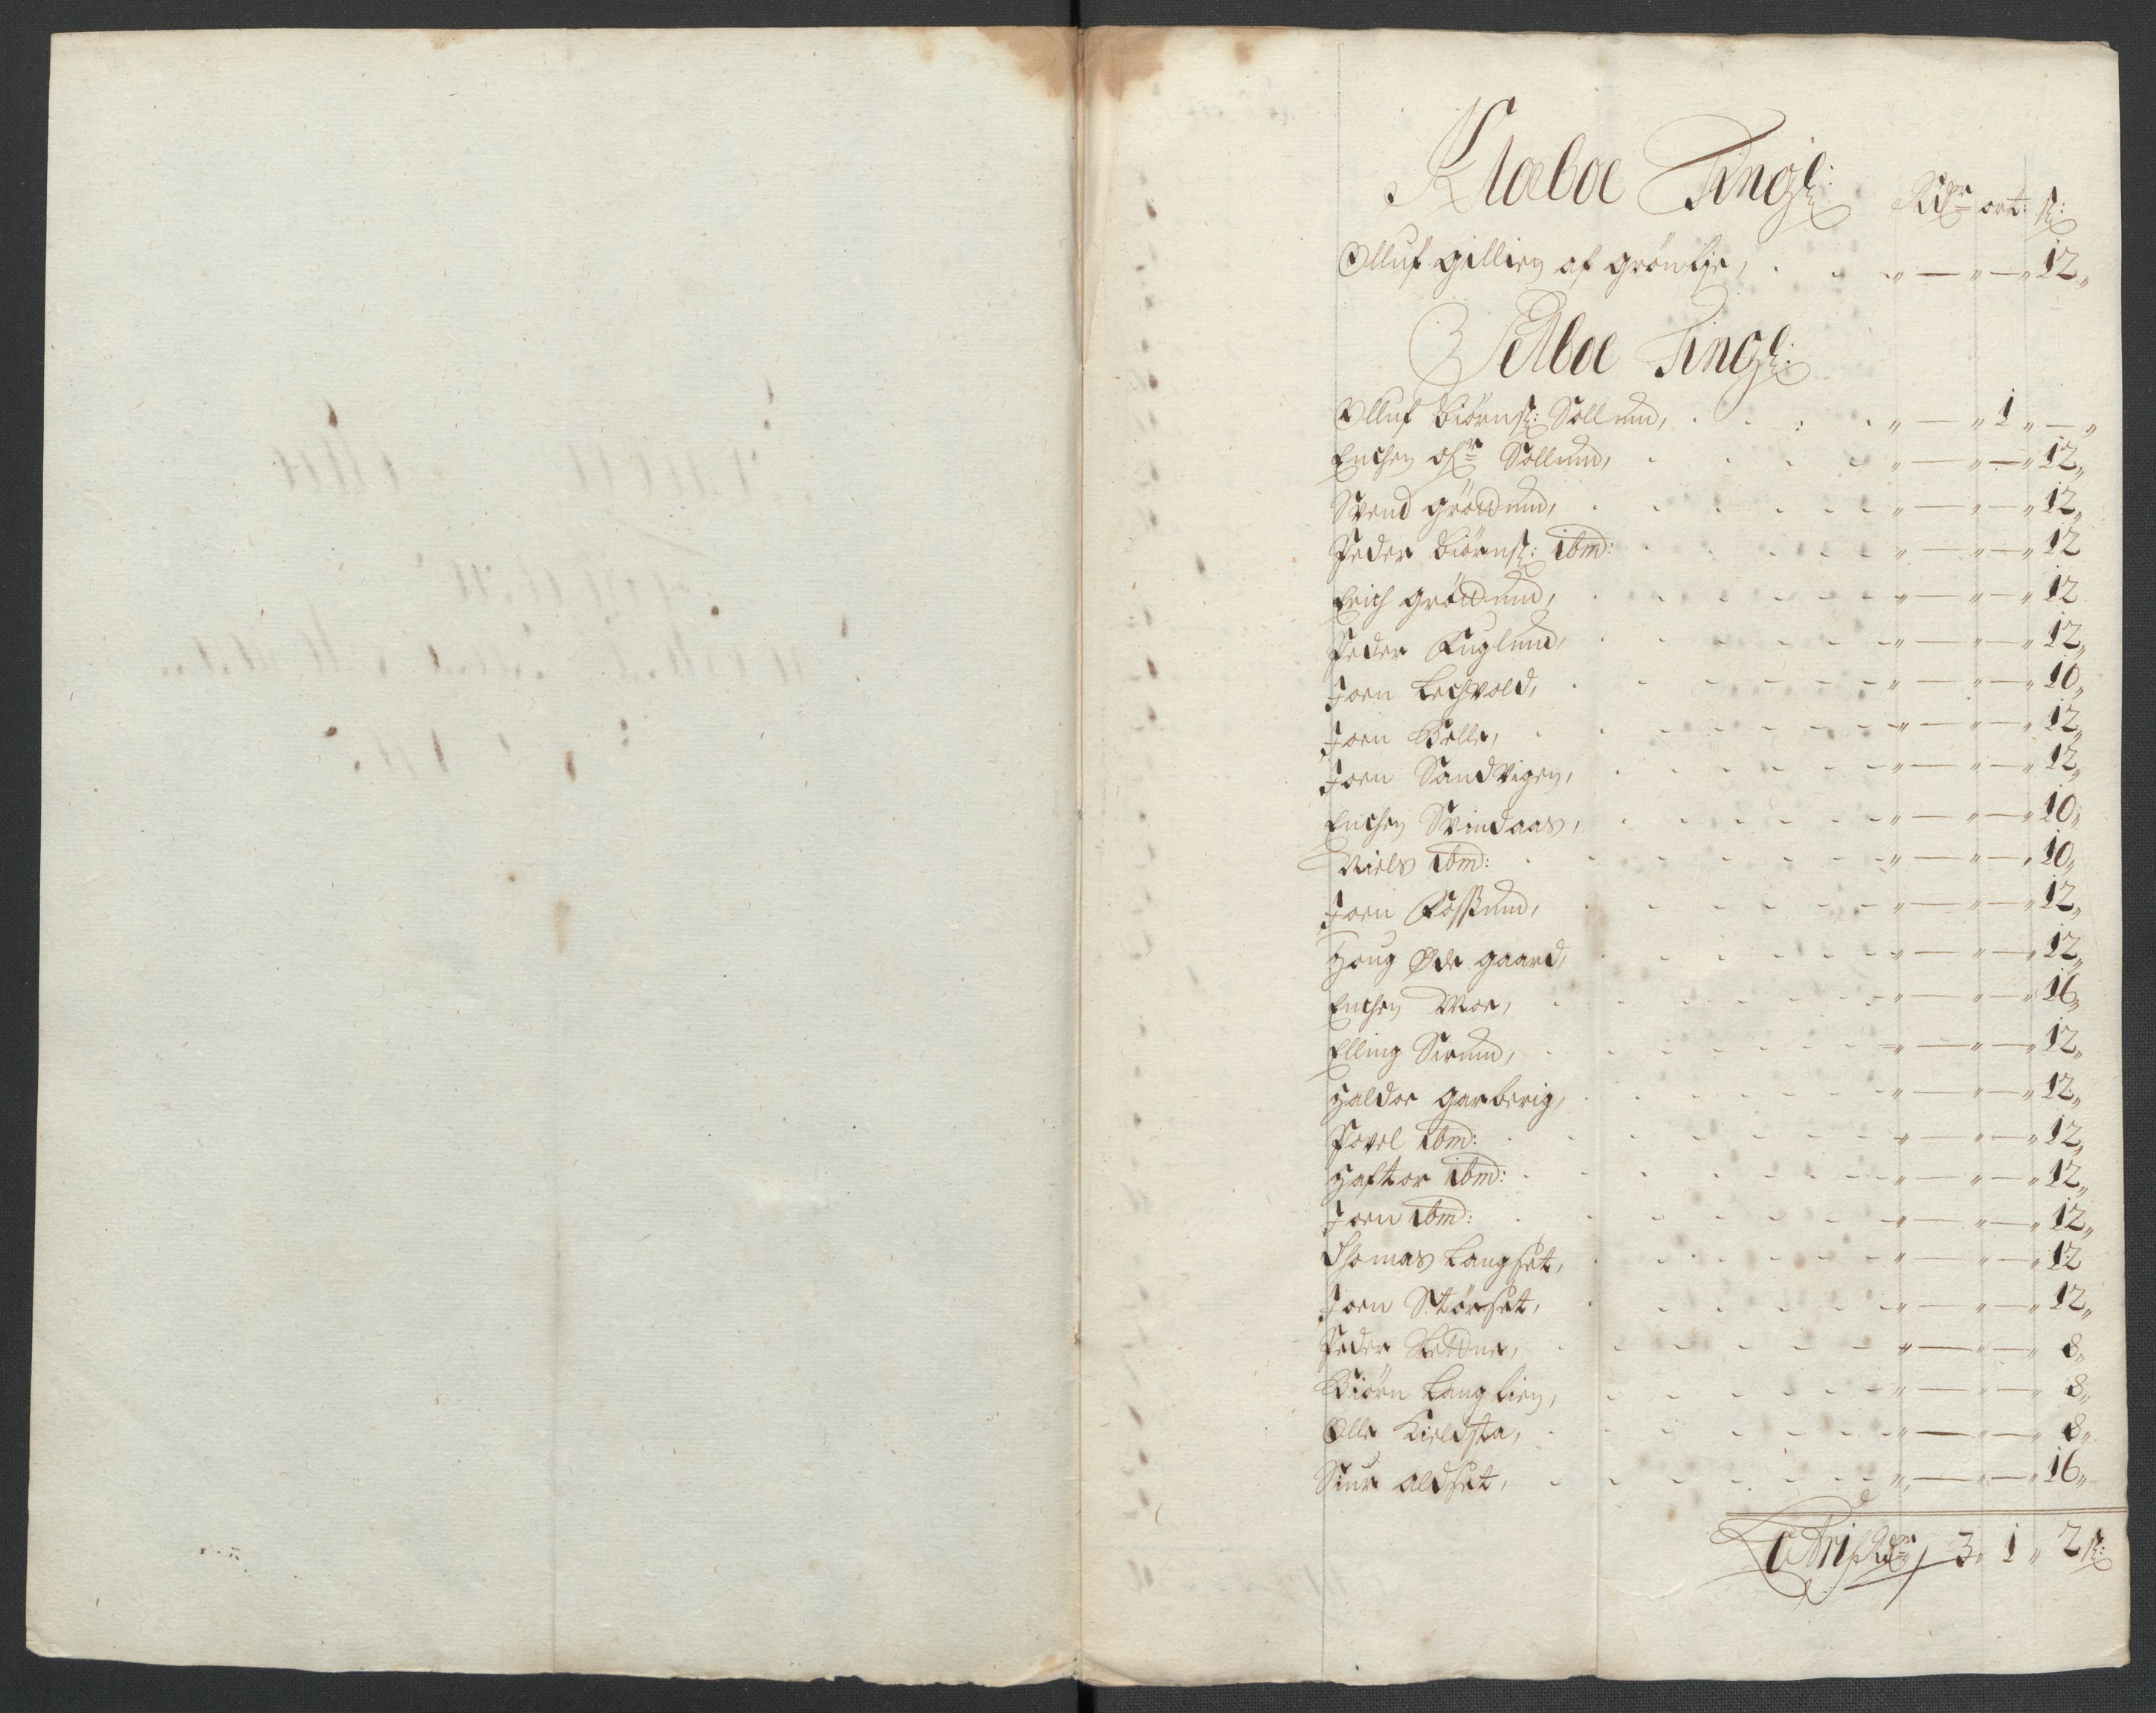 Klæboe Tingl:
Rdr ort: s:
Olluf gillien af grönlie, „ — „ — „ 12„
Selboe Tingl:
Olluf Biörns: Sollum, „ — „ 1 „ — „
Enchen ofr Sollum, „ — „ — „ 12„
Svend gröttum, „ — „ — „ 12„
Peder Biörns: ibm: „ — „ — „ 12
Erich gröttum, „ — „ — „ 12
Peder Fuglum, „ — „ — „ 12„
Joen Lechvold, „ — „ — „ 10„
Joen Balle, „ — „ — „ 12„
Joen Sandvigen, „ — „ — „ 12„
Enchen Svindaas, „ — „ — „ 10„
Niels ibm: „ — „ — „ 10„
Joen Fossum, „ — „ — „ 12„
Houg Øde gaard, „ — „ — „ 12„
Enchen Moe, „ — „ — „ 16„
Elling Sirum, „ — „ — „ 12„
Haldor garberig, „ — „ — „ 12„
Povel ibm: „ — „ — „ 12„
Haftor ibm: „ — „ — „ 12„
Joen ibm: „ — „ — „ 12„
Thomas Langset, „ — „ — „ 12
Joen Störset, „ — „ — „ 12„
Peder „ — „ — „ 8„
Biörn Langlien, „ — „ — „ 8„
Olle Kieldsta, „ — „ — „ 8„
Siur aldset, „ — „ — „ 16„
Latris Rdr 3„ 1 „ 2 s: